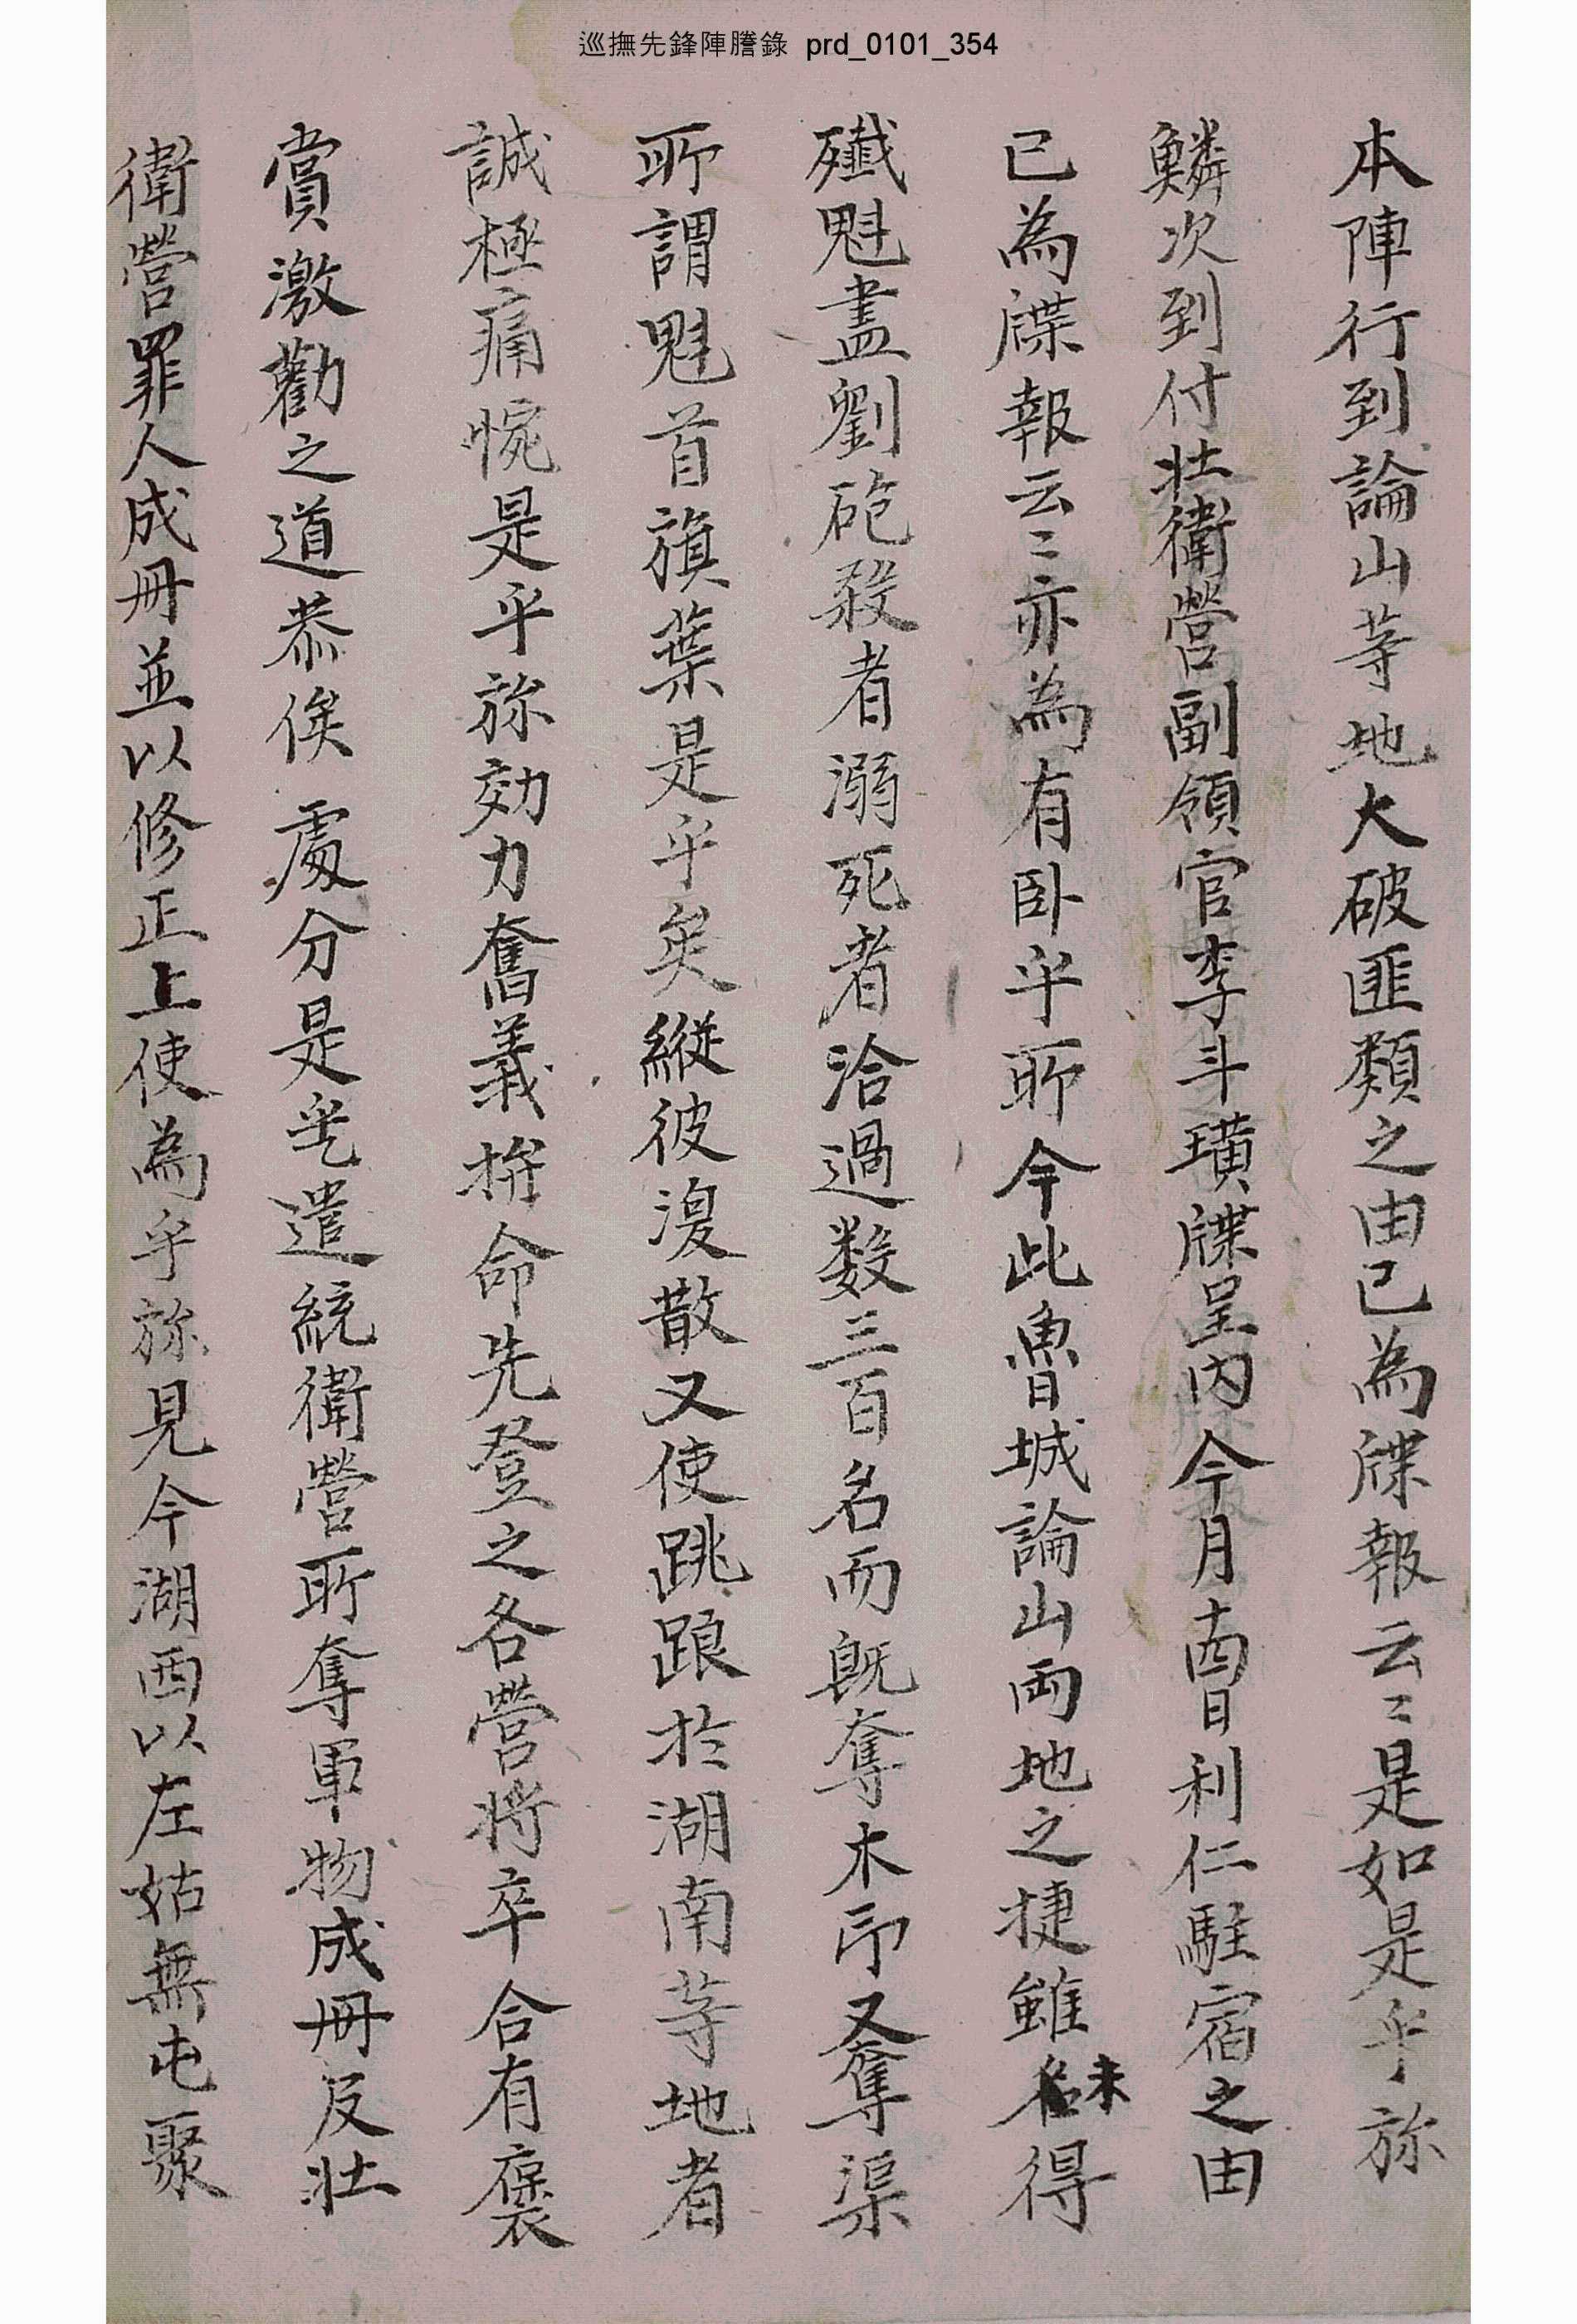 巡撫先鋒陣謄錄 prd_0101_354
本陣行到論山等地大破匪類之由已為牒報云〻是如是乎旀
鱗次到付壯衛營副領官李斗璜牒呈內今月十四日利仁駐宿之由
已為牒報云〻亦為有卧乎所今此魯城論山両地之捷雖未得
殲魁盡劉砲殺者溺死者洽過数三百名而旣奪木印又奪渠
所謂魁首旗葉是乎矣縱彼溲散又使跳踉於湖南等地者
誠極痛惋是乎旀効力奮義拚命先登之各營将卒合有褒
賞激勸之道恭俟處分是乎㫆遣統衛營所奪軍物成冊及壯
衛營罪人成冊並以修正上使為乎旀見今湖西以左姑無屯聚